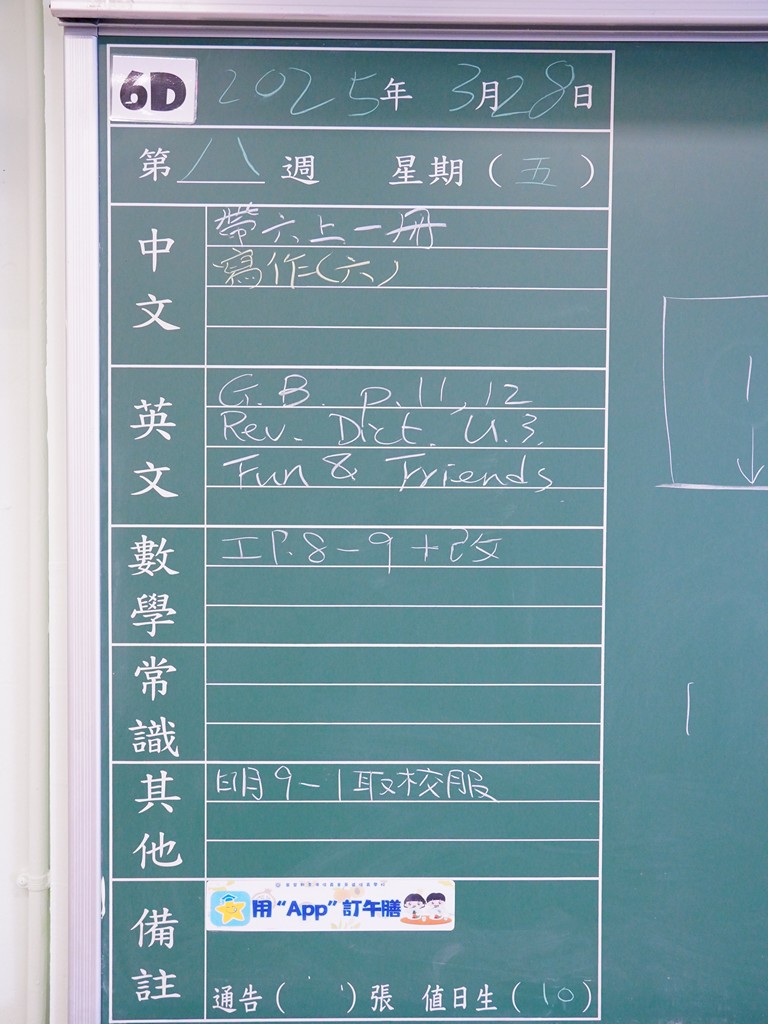 6D 2025年 3月28日
第八週 星期(五)
中文
帶六上一冊
寫作(六)
英文
G.B. p.11, 12
Rev. Dict. U.3.
Fun & Friends
數學
工P.8-9+改
常識
其他
明9-1取校服
備註
用“App”訂午膳
通告( )張 值日生(10)
1
1